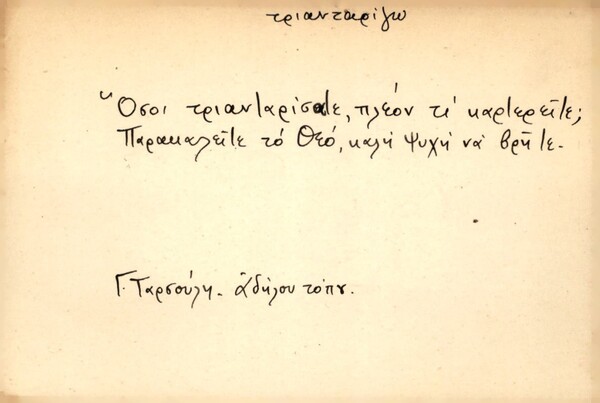 τριανταρίζω
Ὅσοι τριανταρίσατε, πλέον τί καρτερεῖτε;
Παρακαλεῖτε τό Θεό, καλή ψυχή νά βρῆτε.
Γ. Ταρσούλη. Ἀδήλου τόπου.